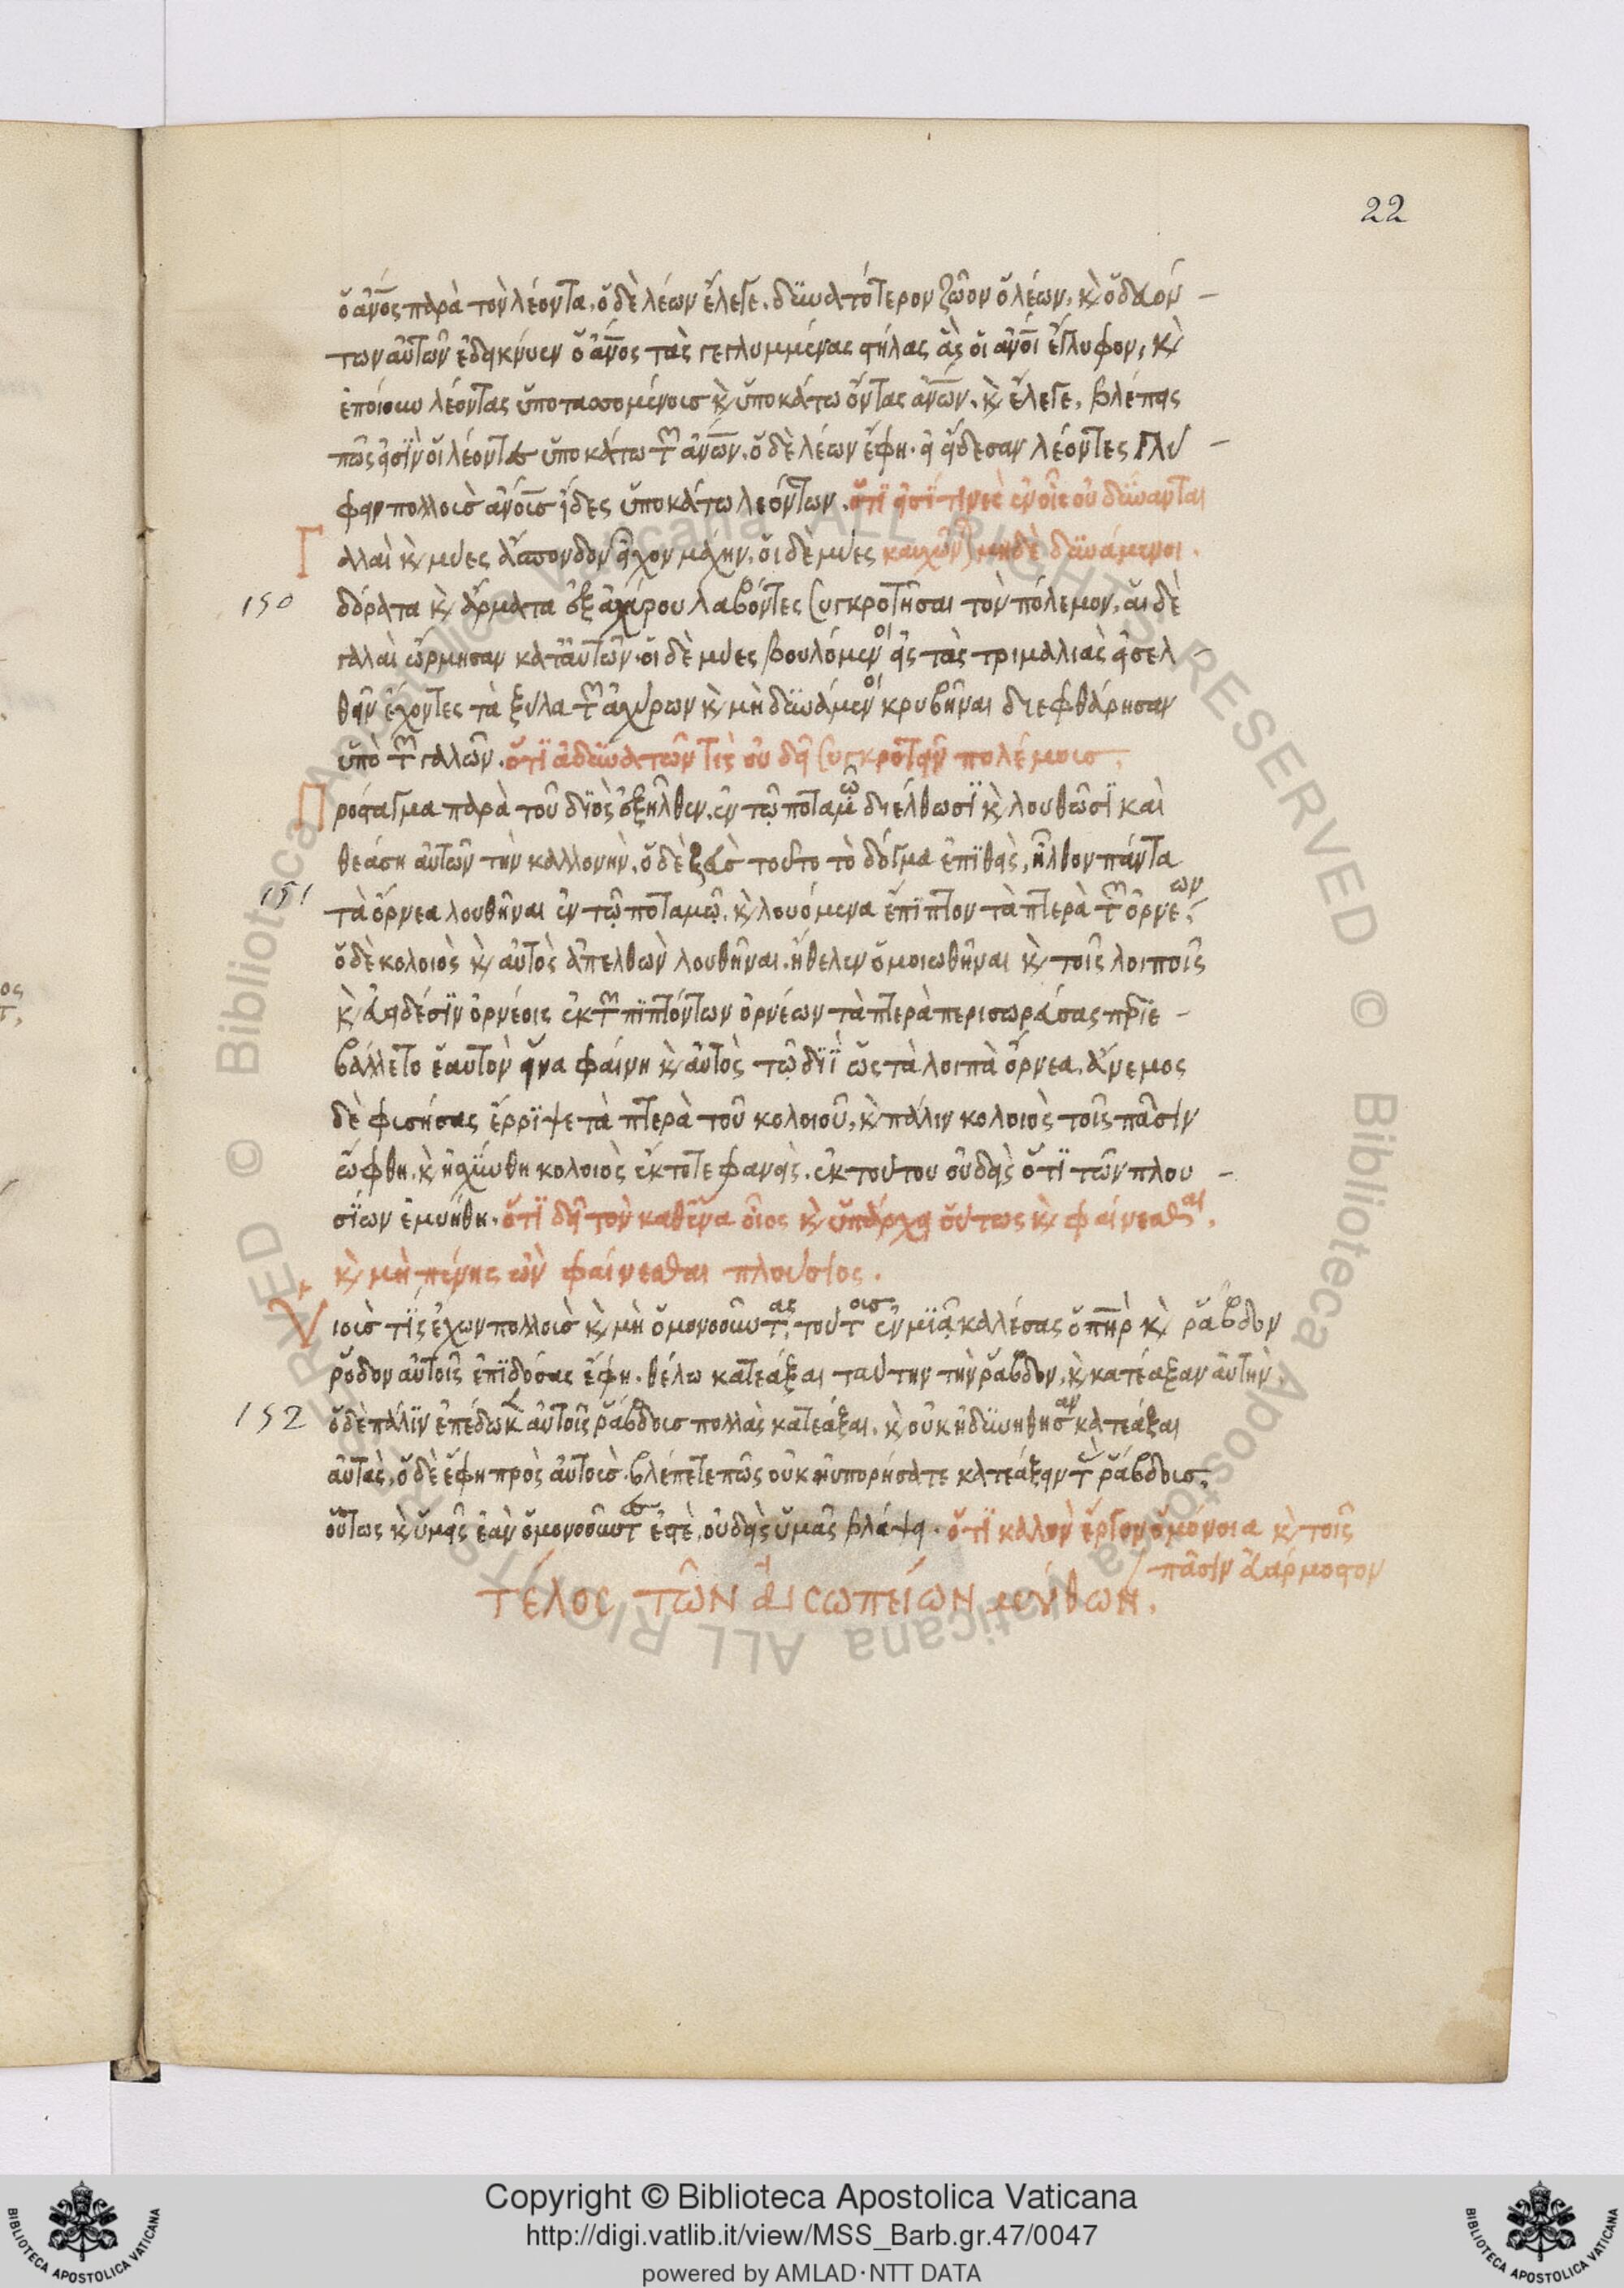 22
ὁ ἄνος παρὰ τὸν λέοντα, ὁ δὲ λέων ἔλεγε. δϋνατότερον ζῶον ὁ λέων, κ̀ ὁδϊον
των αὐτῶν ἐδείκνυεν ὁ ἄνος τὰς γεγλυμμένας στήλας ἃς οἱ ἄνοι ἔγλυφον, κ̀
ἐποίουν λέοντας ὑποτασσομένους κ̀ ὑποκάτω ὄντας ἀνων. κ̀ ἔλεγε, βλέπεις
πῶς εἰσῒν οἱ λέοντες ὑποκάτω τῶν ἀνων. ὁ δὲ λέων ἔφη. εἰ ᾔδεσαν λέοντες γλύ
φειν πολλοὺς ἀνους εἶδες ὑποκάτω λεόντων. ὅτϊ εἰσΐ τινες ἐν οἷς οὐ δϋνανται
Γαλαὶ κ̀ μύες ἄσπονδον εἶχον μάχην, οἱ δὲ μύες καυχῶν) μηδὲ δϋνάμενοι.
150
δόρατα κ̀ ἄρματα ἐξ ἀχύρου λαβόντες συγκροτῆσαι τὸν πόλεμον, αἱ δὲ
γαλαὶ ὥρμησαν κατ' αὐτῶν. οἱ δὲ μύες βουλόμενοι εἰς τὰς τριμαλιὰς εἰσελ
θεῖν ἔχοντες τὰ ξύλα τῶν ἀχύρων κ̀ μὴ δϋνάμενοι κρυβῆναι διεφθάρησαν
ὑπὸ τῶν γαλῶν. ὅτϊ ἀδϋνατῶν τὶς οὐ δεῖ συγκροτεῖν πολέμους.
Πρόσταγμα παρὰ τοῦ δϊὸς ἐξῆλθεν. ἐν τῷ ποταμῷ διέλθωσϊ κ̀ λουθῶσϊ καὶ
θεάση αὐτῶν τὴν καλλονὴν. ὁ δὲ ζεὺς τοῦτο τὸ δόγμα ἐπϊθεὶς, ἦλθον πάντα
151
τὰ ὄρνεα λουθῆναι ἐν τῷ ποταμῷ. κ̀ λουόμενα ἔπϊπτον τὰ πτερὰ τῶν ὀρνέων.
ὁ δὲ κολοιὸς κ̀ αὐτὸς ἀπελθὼν λουθῆναι. ἤθελεν ὁμοιωθῆναι κ̀ τοῖς λοιποῖς
κ̀ ἀειδέσϊν ὀρνέοις ἐκ τῶν πϊπτόντων ὀρνέων τὰ πτερὰ περισωράσας πρϊε
βάλλετο ἑαυτὸν ἵνα φαίνη κ̀ αὐτὸς τῷ δϊῒ ὡς τὰ λοιπὰ ὄρνεα. ἄνεμος
δὲ φισήσας ἔρρϊψε τὰ πτερὰ τοῦ κολοιοῦ, κ̀ πάλιν κολοιὸς τοῖς πᾶσιν
ὤφθη. κ̀ ἠσχϋνθη κολοιὸς ἔκτοτε φανεὶς. ἐκ τούτου οὐδεὶς ὅτϊ τῶν πλου
σΐων ἐμυήθη. ὅτϊ δεῖ τὸν καθένα οἷος κ̀ ὑπάρχει οὕτως κ̀ φαίνεσθαι.
κ̀ μὴ πένης ὢν φαίνεσθαι πλούσιος.
Υἱοὺς τϊς ἔχων πολλοὺς κ̀ μὴ ὁμονοοῦντας, τούτους ἐν μϊᾷ καλέσας ὁ πηρ κ̀ ῥάβδον
ῥόδον αὐτοῖς ἐπϊδόσας ἔφη. θέλω κατεάξαι ταύτην τὴν ῥάβδον, κ̀ κατέαξαν αὐτήν.
152
ὁ δὲ πάλϊν ἐπέδωκε αὐτοῖς ῥάβδους πολλὰς κατεάξαι. κ̀ οὐκ ἠδϋνήθησαν κατεάξαι
αὐτὰς, ὁ δὲ ἔφη πρὸς αὐτοὺς. βλέπετε πῶς οὐκ ηὐπορήσατε κατεάξειν τὰς ῥάβδους,
οὕτως κ̀ ὑμεῖς ἐὰν ὁμονοοῦντες ἐστὲ, οὐδεὶς ὑμᾶς βλάψει. ὅτϊ καλὸν ἔργον ὁμόνοια κ̀ τοῖς
πᾶσιν ἁρμοστον
τέλος τῶν αἰσωπείων μύθων.
Copyright © Biblioteca Apostolica Vaticana
http://digi.vatlib.it/view/MSS_Barb.gr.47/0047
powered by AMLAD·NTT DATA